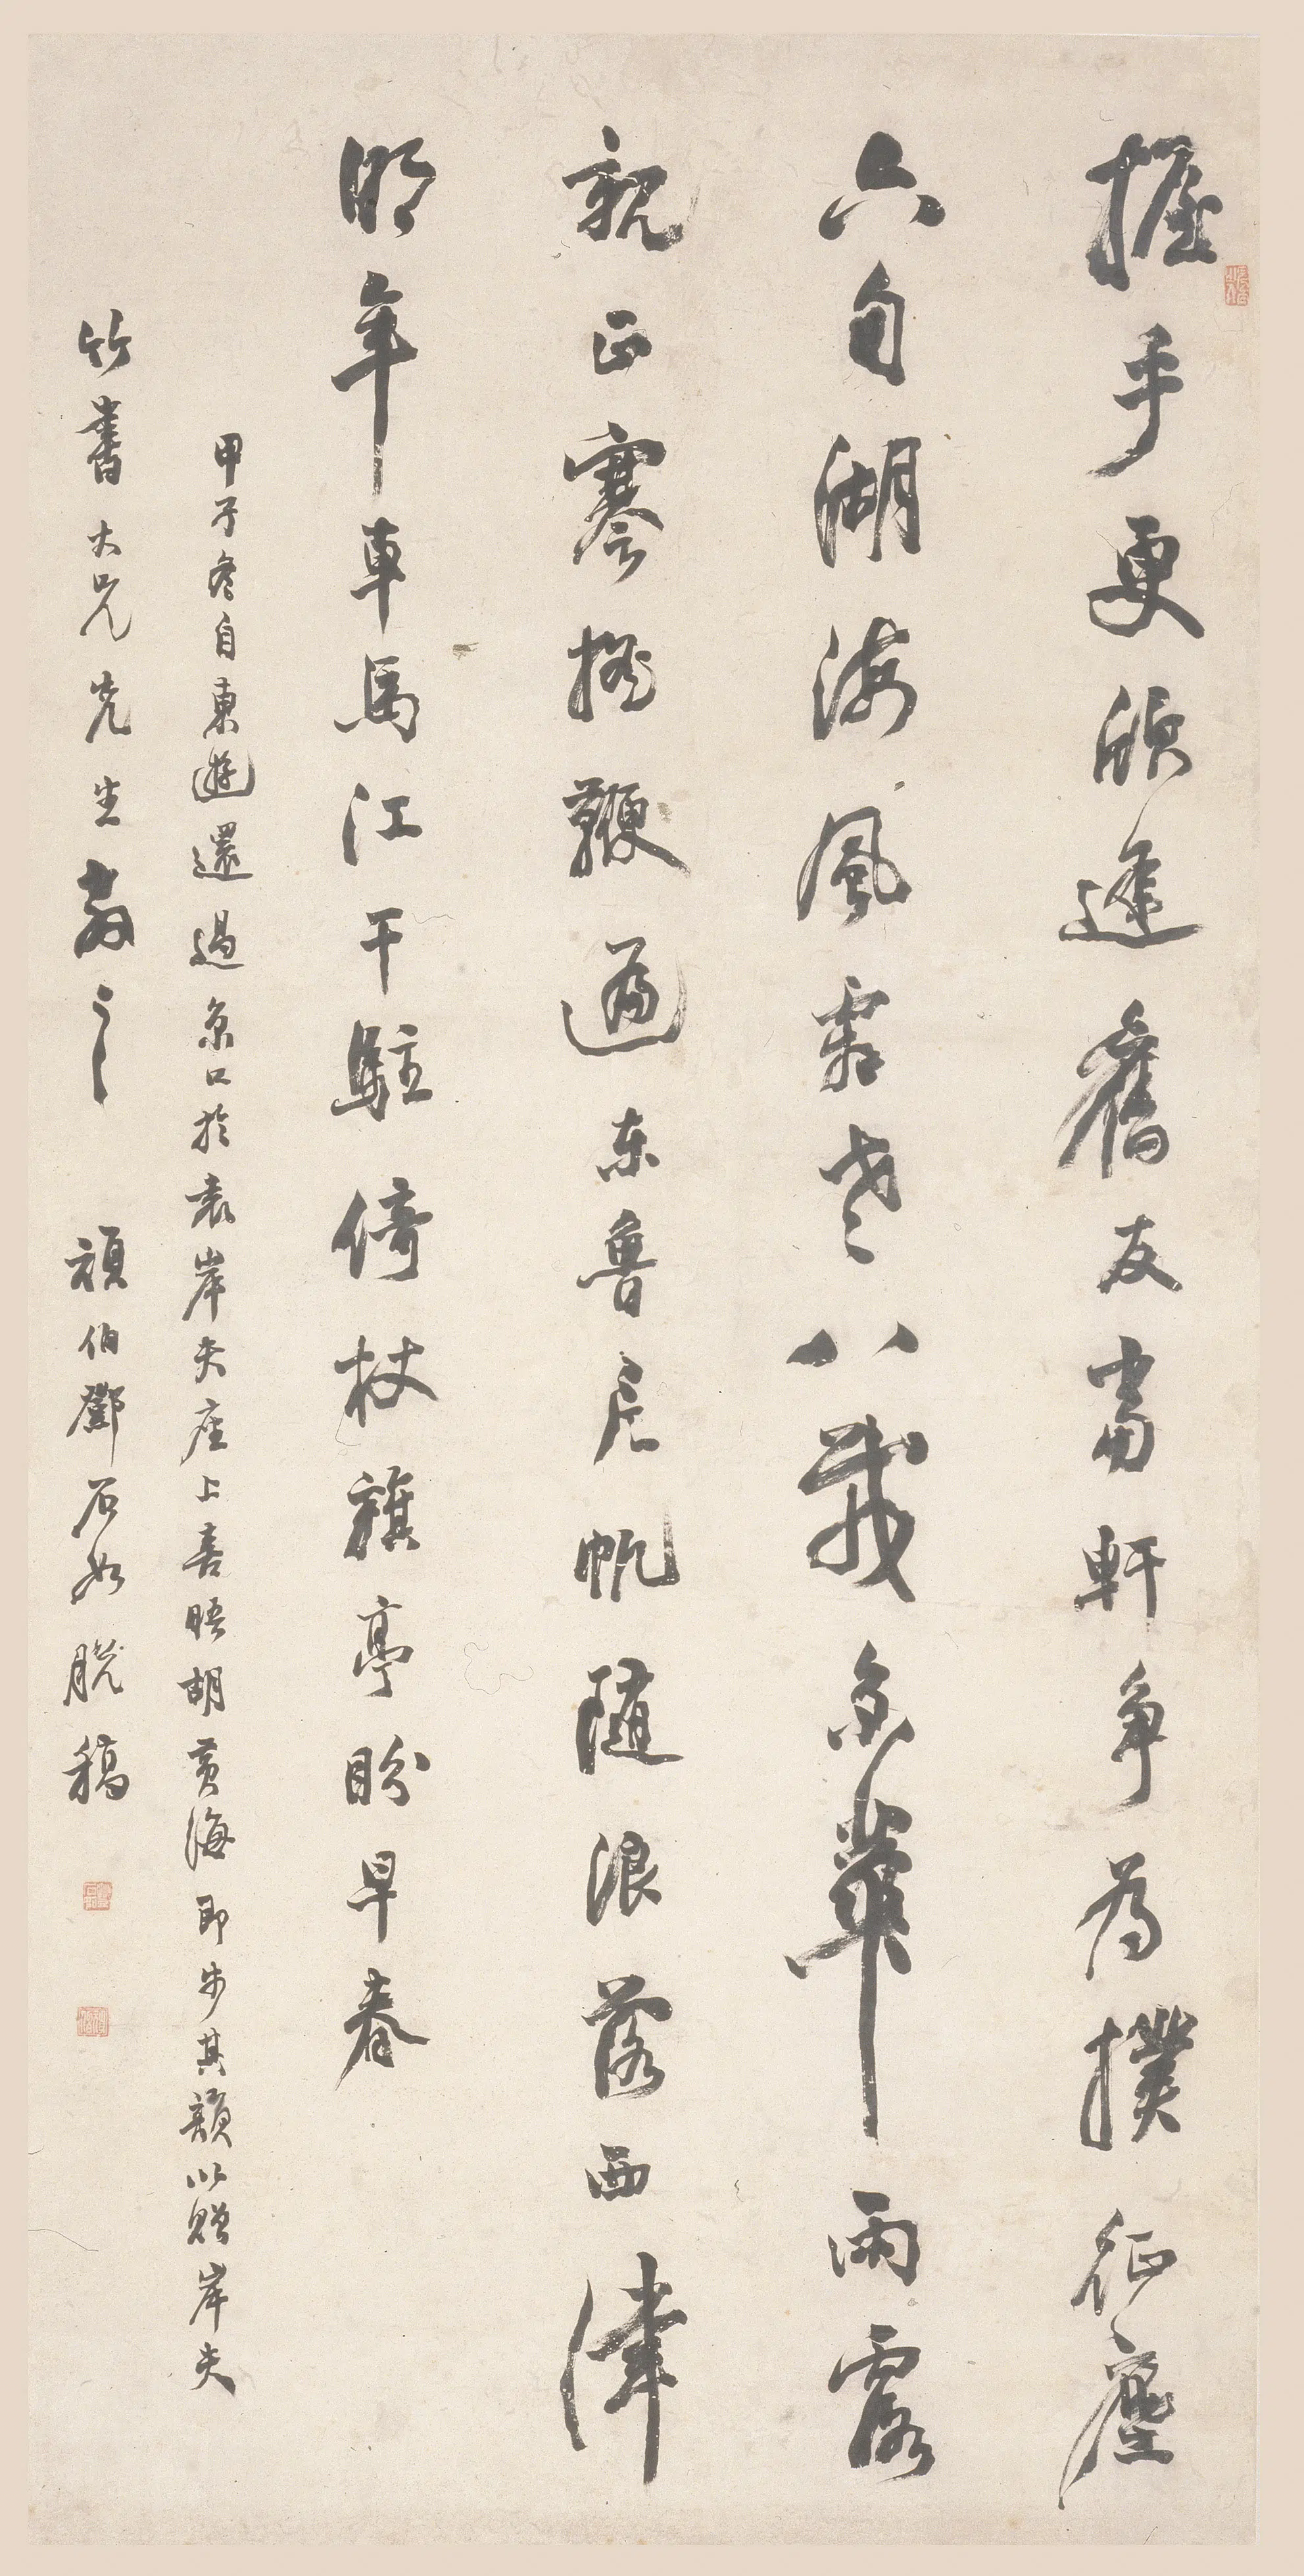 握手更欣逢舊友當軒爭為撲征塵
六旬湖海風霜老八載京華雨露
親疋蹇搖鞭過東魯片帆隨浪落西津
明年車馬江干駐倚杖旗亭盼早春
甲子冬自東遊還過京口於袁岸夫座上喜晤胡黃海即步其韻以贈岸夫
竹書大兄先生教之 頑伯鄧石如脫稿